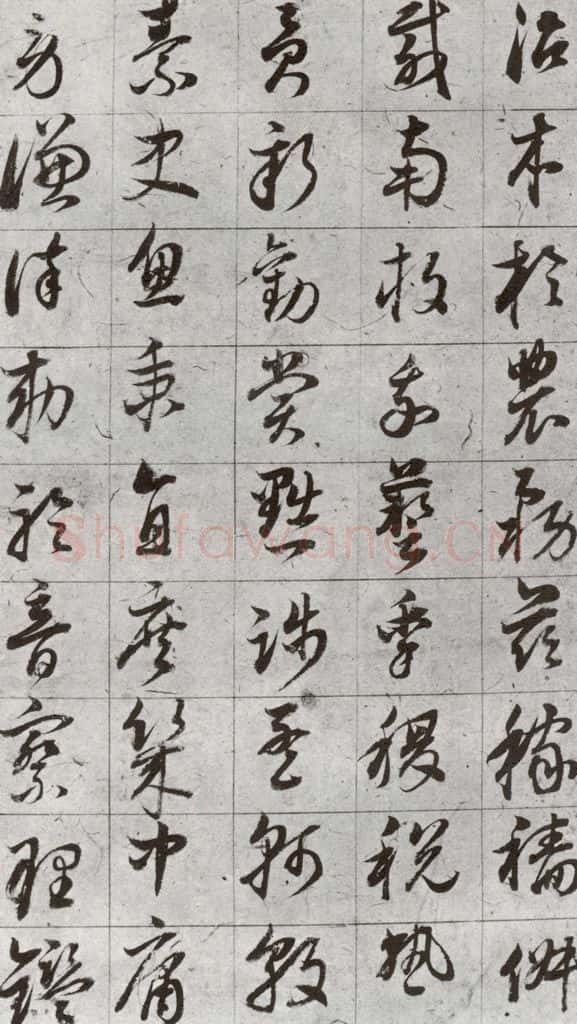 治本於農務茲稼穡俶
載南畝我藝黍稷稅熟
貢新勸賞黜陟孟軻敦
素史魚秉直庶幾中庸
勞謙謹敕聆音察理鑑
Shufawang.CN